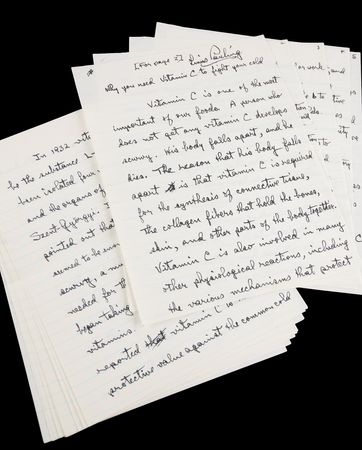 [For page 2] Linus Pauling
Why you need Vitamin C to fight your cold
Vitamin C is one of the most
important of our foods. A person who
does not get any vitamin C develops
scurvy. His body falls apart, and he
dies. The reason that his body falls
apart is that vitamin C is required
for the synthesis of connective tissue,
the collagen fibers that hold the bones,
skin, and other parts of the body together.
Vitamin C is also involved in many
other physiological reactions, including
the various mechanisms that protect
In 1932 vit
be the substance
been isolated four
and the organs of
Szent-Györgyi.
pointed out that
seemed to be
scurvy, a
needed for th
began taking
vitamins.
reported that vitamin C
protective value against the common cold
work
and
to